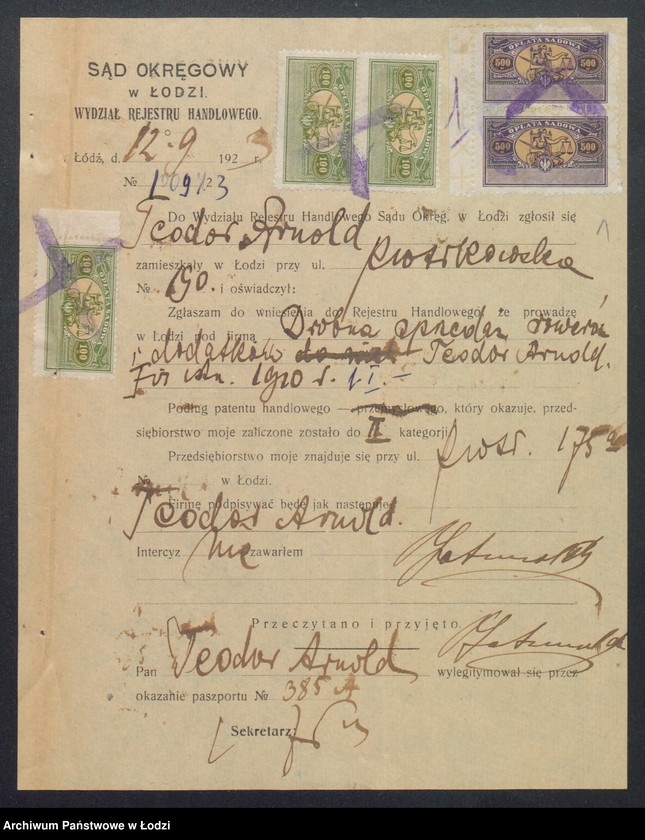 SĄD OKRĘGOWY
w ŁODZI.
WYDZIAŁ REJESTRU HANDLOWEGO.
Łódź, d. 12 9 1923 r.
№
100 100
OPŁATA SĄDOWA
500 500
OPŁATA SĄDOWA
500 500
1
Do Wydziału Rejestru Handlowego Sądu Okręg. w Łodzi zgłosił się
Teodor Arnold
zamieszkały w Łodzi przy ul. Piotrkowska
№ 190. i oświadczył:
100 100
Zgłaszam do wniesienia do Rejestru Handlowego, że prowadzę
w Łodzi pod firmą Drobna sprzedaż rowerów
i dodatków Teodor Arnold.
1910 r. 1 I.-
Podług patentu handlowego — przemysłowego, który okazuje, przed-
siębiorstwo moje zaliczone zostało do II kategorji
Przedsiębiorstwo moje znajduje się przy ul. Piotr. 175
№ w Łodzi.
Firmę podpisywać będę jak następuje:
Teodor Arnold.
Intercyz nie zawarłem
Przeczytano i przyjęto.
Pan Teodor Arnold wylegitymował się przez
okazanie paszportu № 385
Sekretarz:
Archiwum Państwowe w Łodzi